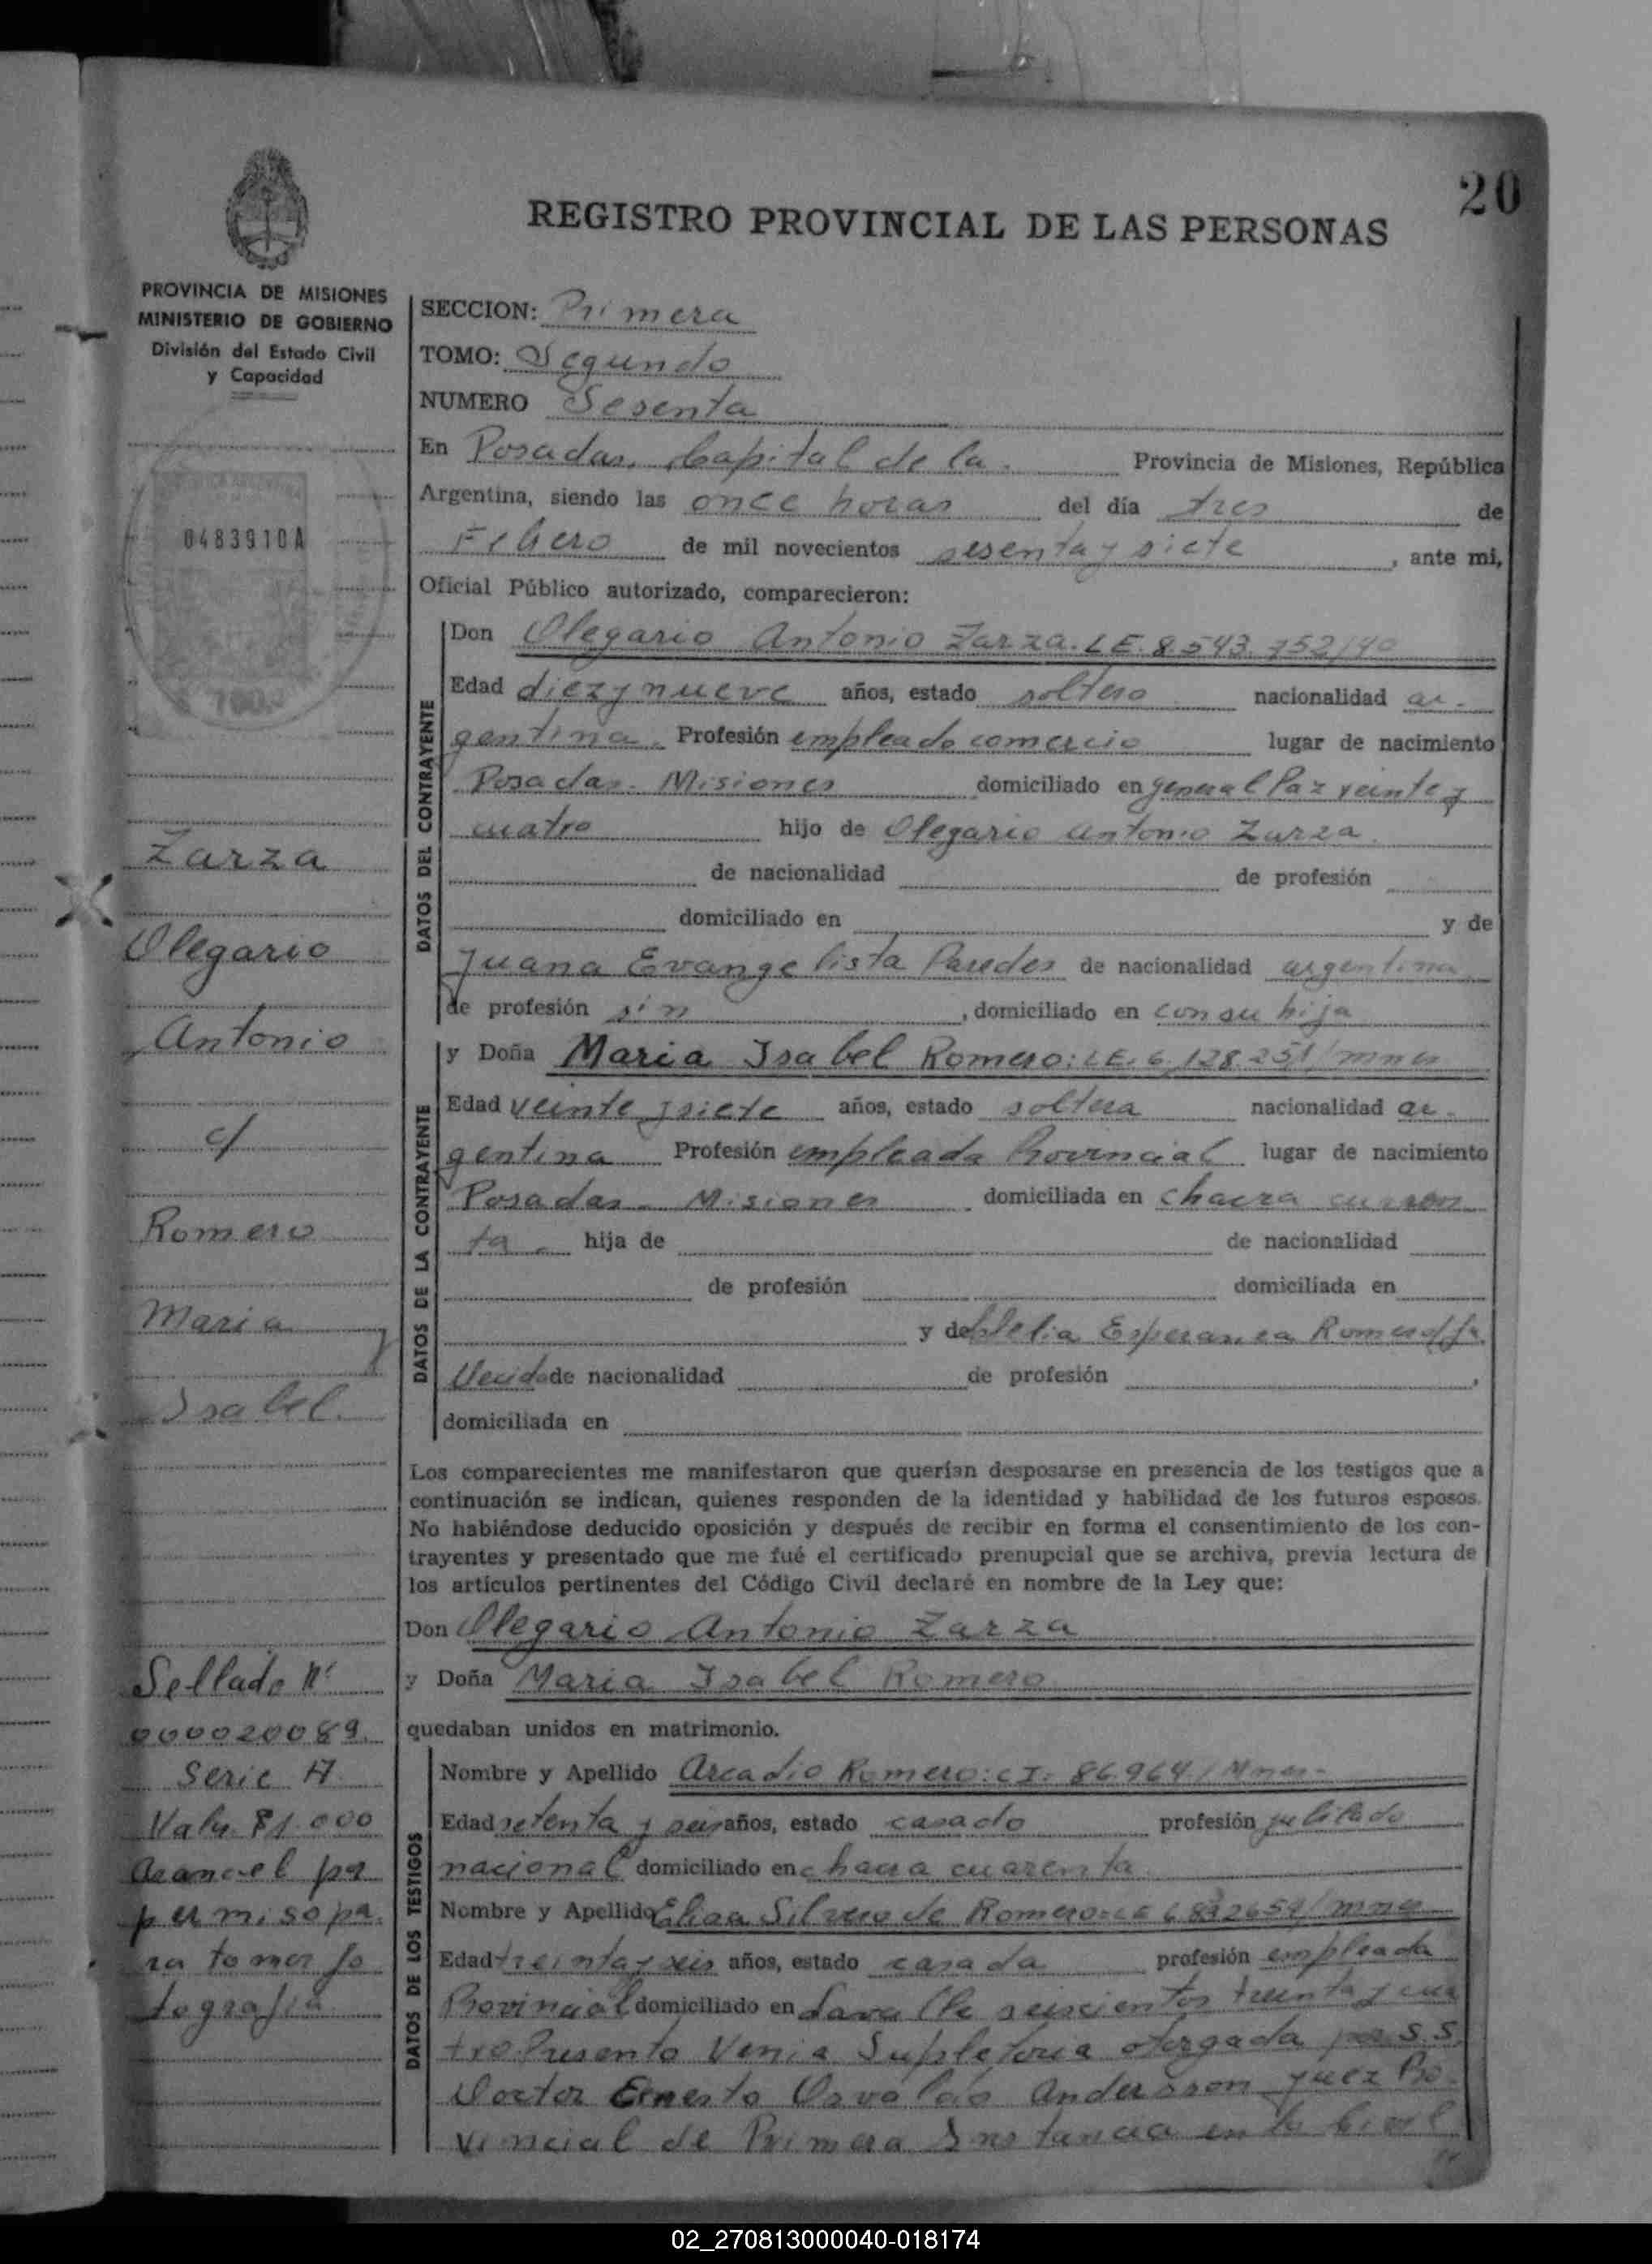 20
REGISTRO PROVINCIAL DE LAS PERSONAS
PROVINCIA DE MISIONES
MINISTERIO DE GOBIERNO
División del Estado Civil
y Capacidad
0483910A
Zarza
Olegario
Antonio
c/
Romero
Maria
Isabel
Sellado Nº
000020089.
Serie A
Valr. $1.000
Arancel pa
permiso pa.
ra tomar fo
tografia
SECCION: Primera
TOMO: Segundo
NUMERO Sesenta
En Posadas, Capital de la Provincia de Misiones, República
Argentina, siendo las once horas del día tres de
Febrero de mil novecientos sesenta y siete, ante mi,
Oficial Público autorizado, comparecieron:
DATOS DEL CONTRAYENTE
Don Olegario Antonio Zarza. LE. 8.543.
Edad diez y nueve años, estado soltero nacionalidad ar-
gentina. Profesión empleado comercio lugar de nacimiento
Posadas. Misiones domiciliado en general Paz veinte y
cuatro hijo de Olegario Antonio Zarza.
de nacionalidad de profesión
domiciliado en y de
Juana Evangelista Paredes de nacionalidad argentina
de profesión sin, domiciliado en con su hija
DATOS DE LA CONTRAYENTE
y Doña Maria Isabel Romero: LE. 6.128.251/mnes
Edad veinte y siete años, estado soltera nacionalidad ar-
gentina Profesión empleada Provincial lugar de nacimiento
Posadas - Misiones domiciliada en chacra cuaren
ta. hija de de nacionalidad
de profesión domiciliada en
y de Clelia Esperanza Romero
de nacionalidad de profesión,
domiciliada en
Los comparecientes me manifestaron que querían desposarse en presencia de los testigos que a
continuación se indican, quienes responden de la identidad y habilidad de los futuros esposos.
No habiéndose deducido oposición y después de recibir en forma el consentimiento de los con-
trayentes y presentado que me fué el certificado prenupcial que se archiva, previa lectura de
los artículos pertinentes del Código Civil declaré en nombre de la Ley que:
Don Olegario Antonio Zarza
y Doña Maria Isabel Romero
quedaban unidos en matrimonio.
DATOS DE LOS TESTIGOS
Nombre y Apellido Arcadio Romero: CI: 86.964/Mnes-
Edad setenta y seis años, estado casado profesión jubilado
nacional domiciliado en chacra cuarenta
Nombre y Apellido Silvero de Romero
Edad treinta y seis años, estado casada profesión empleada
Provincial domiciliado en Lavalle seiscientos treinta y cua
tro. Presento Venia Supletoria otorgada por S.S.
Doctor Ernesto Osvaldo Andersson Juez Pro-
vincial de Primera Instancia en lo Civil
02_270813000040-018174